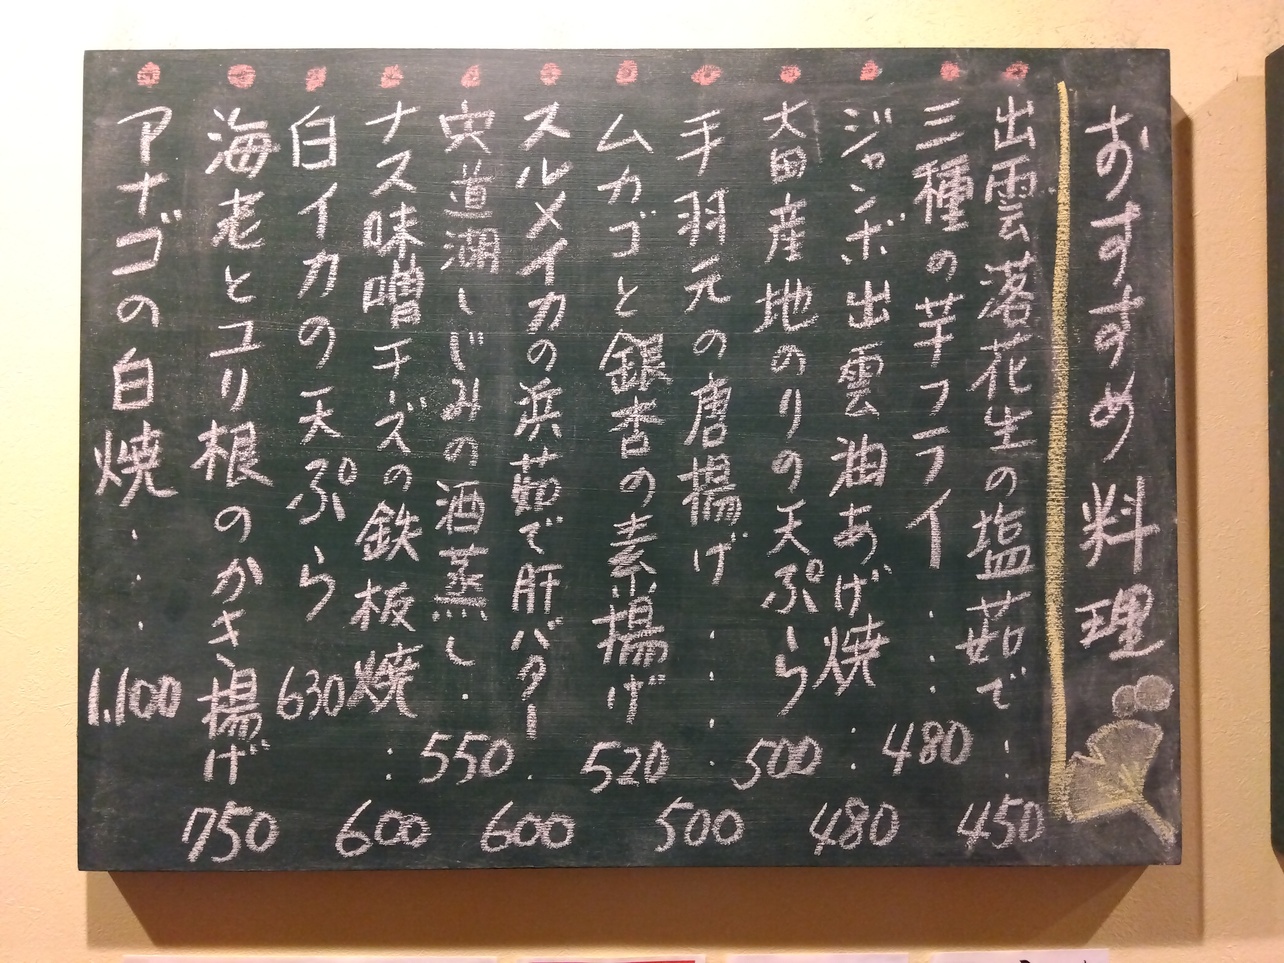 おすすめ料理
出雲落花生の塩茹で：450
三種の芋フライ：・480
ジャンボ出雲油あげ焼：480
大田産地のりの天ぷら500
手羽元の唐揚げ・・・・500
ムカゴと銀杏の素揚げ520
スルメイカの浜茹で肝バター・600
宍道湖しじみの酒蒸し・550
ナス味噌チーズの鉄板焼：600
白イカの天ぷら630
海老とユリ根のかき揚げ750
アナゴの白焼・：・1,100